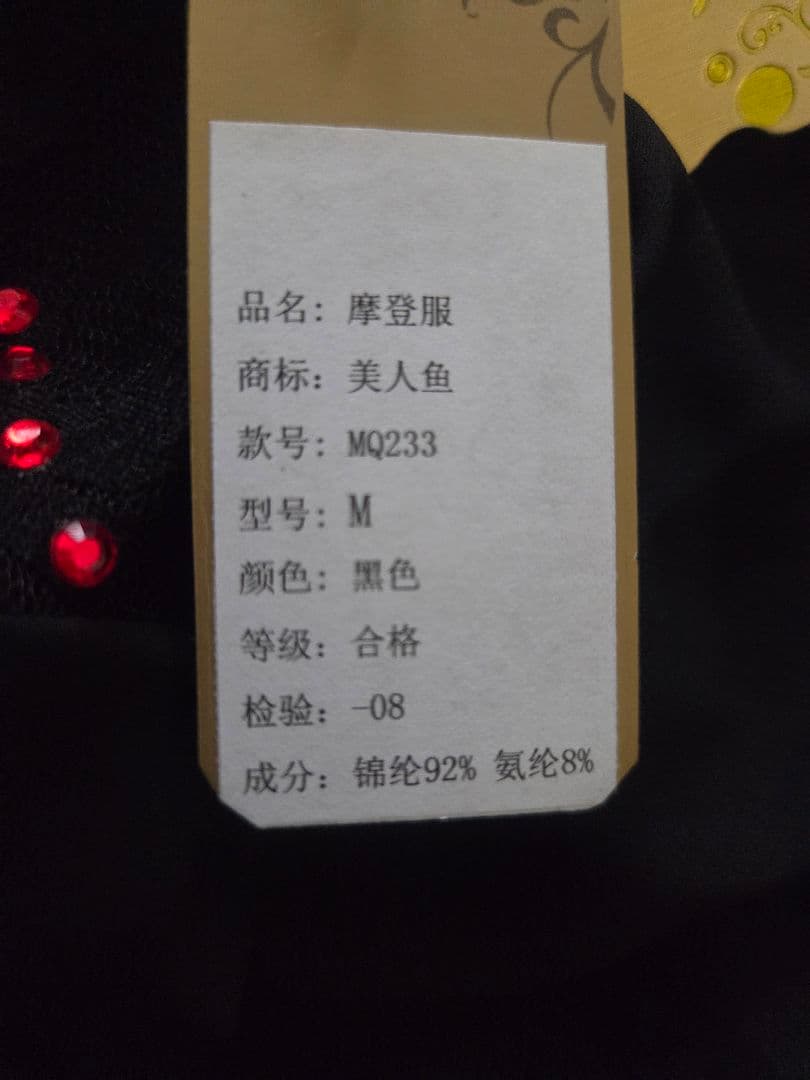 品名：摩登服
商标：美人鱼
款号：MQ233
型号：M
颜色：黑色
等级：合格
检验：-08
成分：锦纶92% 氨纶8%